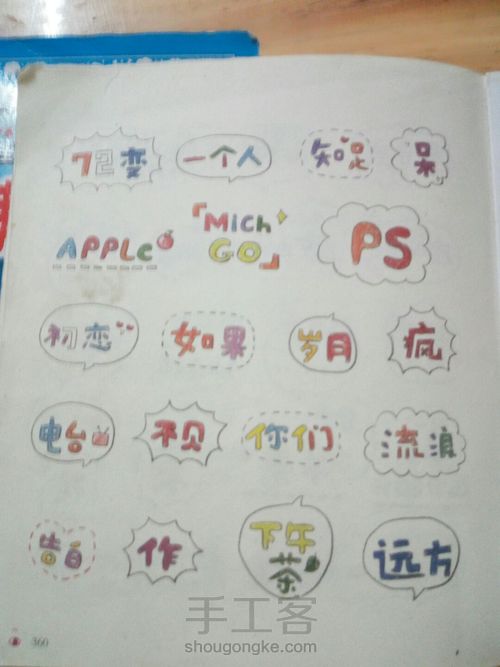 72变 一个人 呆
APPLe 「Mich GO」 PS
初恋 如果 岁月 疯
电台 你们 流浪
告白 作 下午茶 远方
360
手工客
shougongke.com